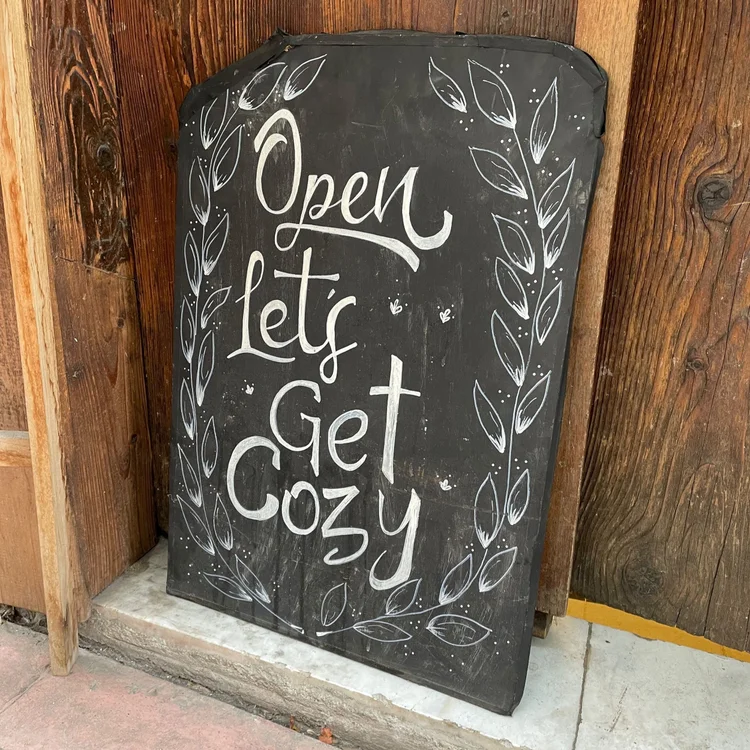 Open
Let's
Get
Cozy